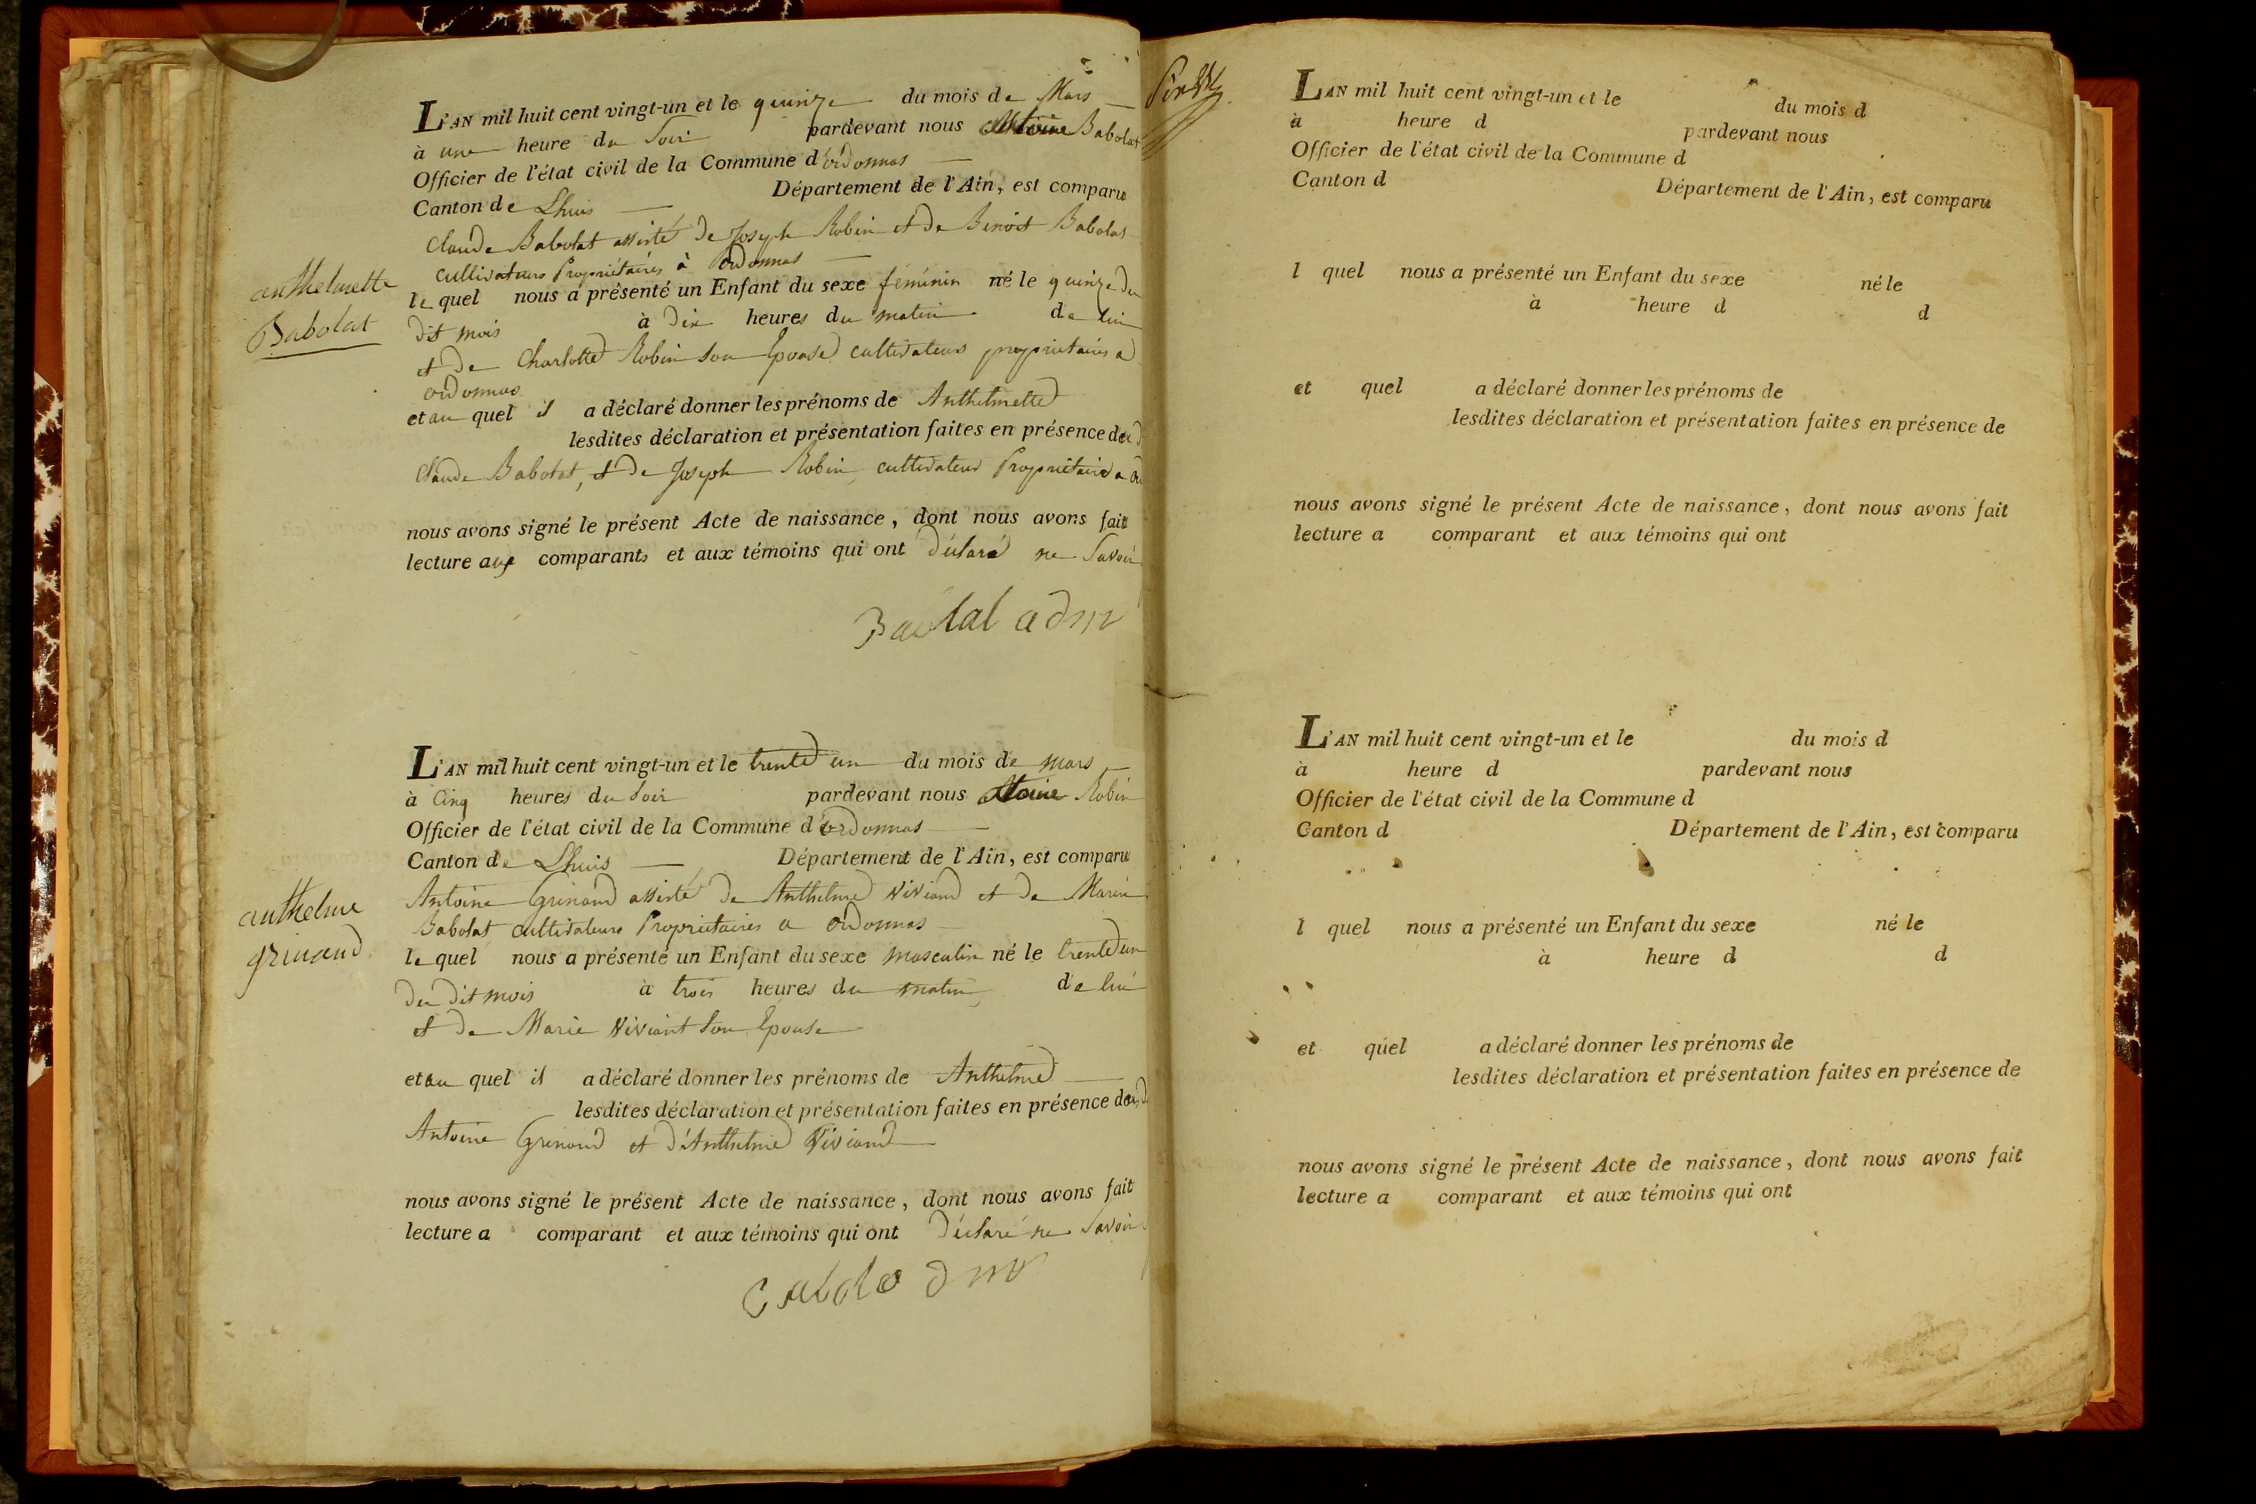 L'AN mil huit cent vingt-un et le quinze du mois de Mars
à une heure du Soir pardevant nous Antoine Babolat
Officier de l'état civil de la Commune d'ordonnas
Canton de Lhuis Département de l'Ain, est comparu
Claude Babolat assisté de Joseph Robin et de Benoit Babolat
cultivateurs Propriétaires à ordonnas
anthelmette
Babolat
le quel nous a présenté un Enfant du sexe féminin né le quinze du
dit mois à dix heures du matin de lui
et de Charlotte Robin son Epouse cultivateurs propriétaires a
ordonnas
et au quel il a déclaré donner les prénoms de Anthelmette
lesdites déclaration et présentation faites en présence du d
Claude Babolat, et de Joseph Robin, cultivateur Propriétaire a
nous avons signé le présent Acte de naissance, dont nous avons fait
lecture aux comparants et aux témoins qui ont déclaré ne Savoir
L'AN mil huit cent vingt-un et le trente un du mois de mars
à Cinq heures du Soir pardevant nous Robin
Officier de l'état civil de la Commune d'ordonnas
Canton de Lhuis Département de l'Ain, est comparu
Antoine Grinand assisté de Anthelme Viviand et de Marin
Babolat cultivateurs Propriétaires a ordonnas
anthelme
grinand
le quel nous a présenté un Enfant du sexe masculin né le trente un
du dit mois à trois heures du matin de lui
et de Marie Viviant son Epouse
et au quel il a déclaré donner les prénoms de Anthelme
lesdites déclaration et présentation faites en présence du d
Antoine Grinand et d'Anthelme Viviand
nous avons signé le présent Acte de naissance, dont nous avons fait
lecture a comparant et aux témoins qui ont déclaré ne Savoir
L'AN mil huit cent vingt-un et le du mois d
à heure d pardevant nous
Officier de l'état civil de la Commune d
Canton d Département de l'Ain, est comparu
l quel nous a présenté un Enfant du sexe né le
à heure d d
et quel a déclaré donner les prénoms de
lesdites déclaration et présentation faites en présence de
nous avons signé le présent Acte de naissance, dont nous avons fait
lecture a comparant et aux témoins qui ont
L'AN mil huit cent vingt-un et le du mois d
à heure d pardevant nous
Officier de l'état civil de la Commune d
Canton d Département de l'Ain, est comparu
l quel nous a présenté un Enfant du sexe né le
à heure d d
et quel a déclaré donner les prénoms de
lesdites déclaration et présentation faites en présence de
nous avons signé le présent Acte de naissance, dont nous avons fait
lecture a comparant et aux témoins qui ont